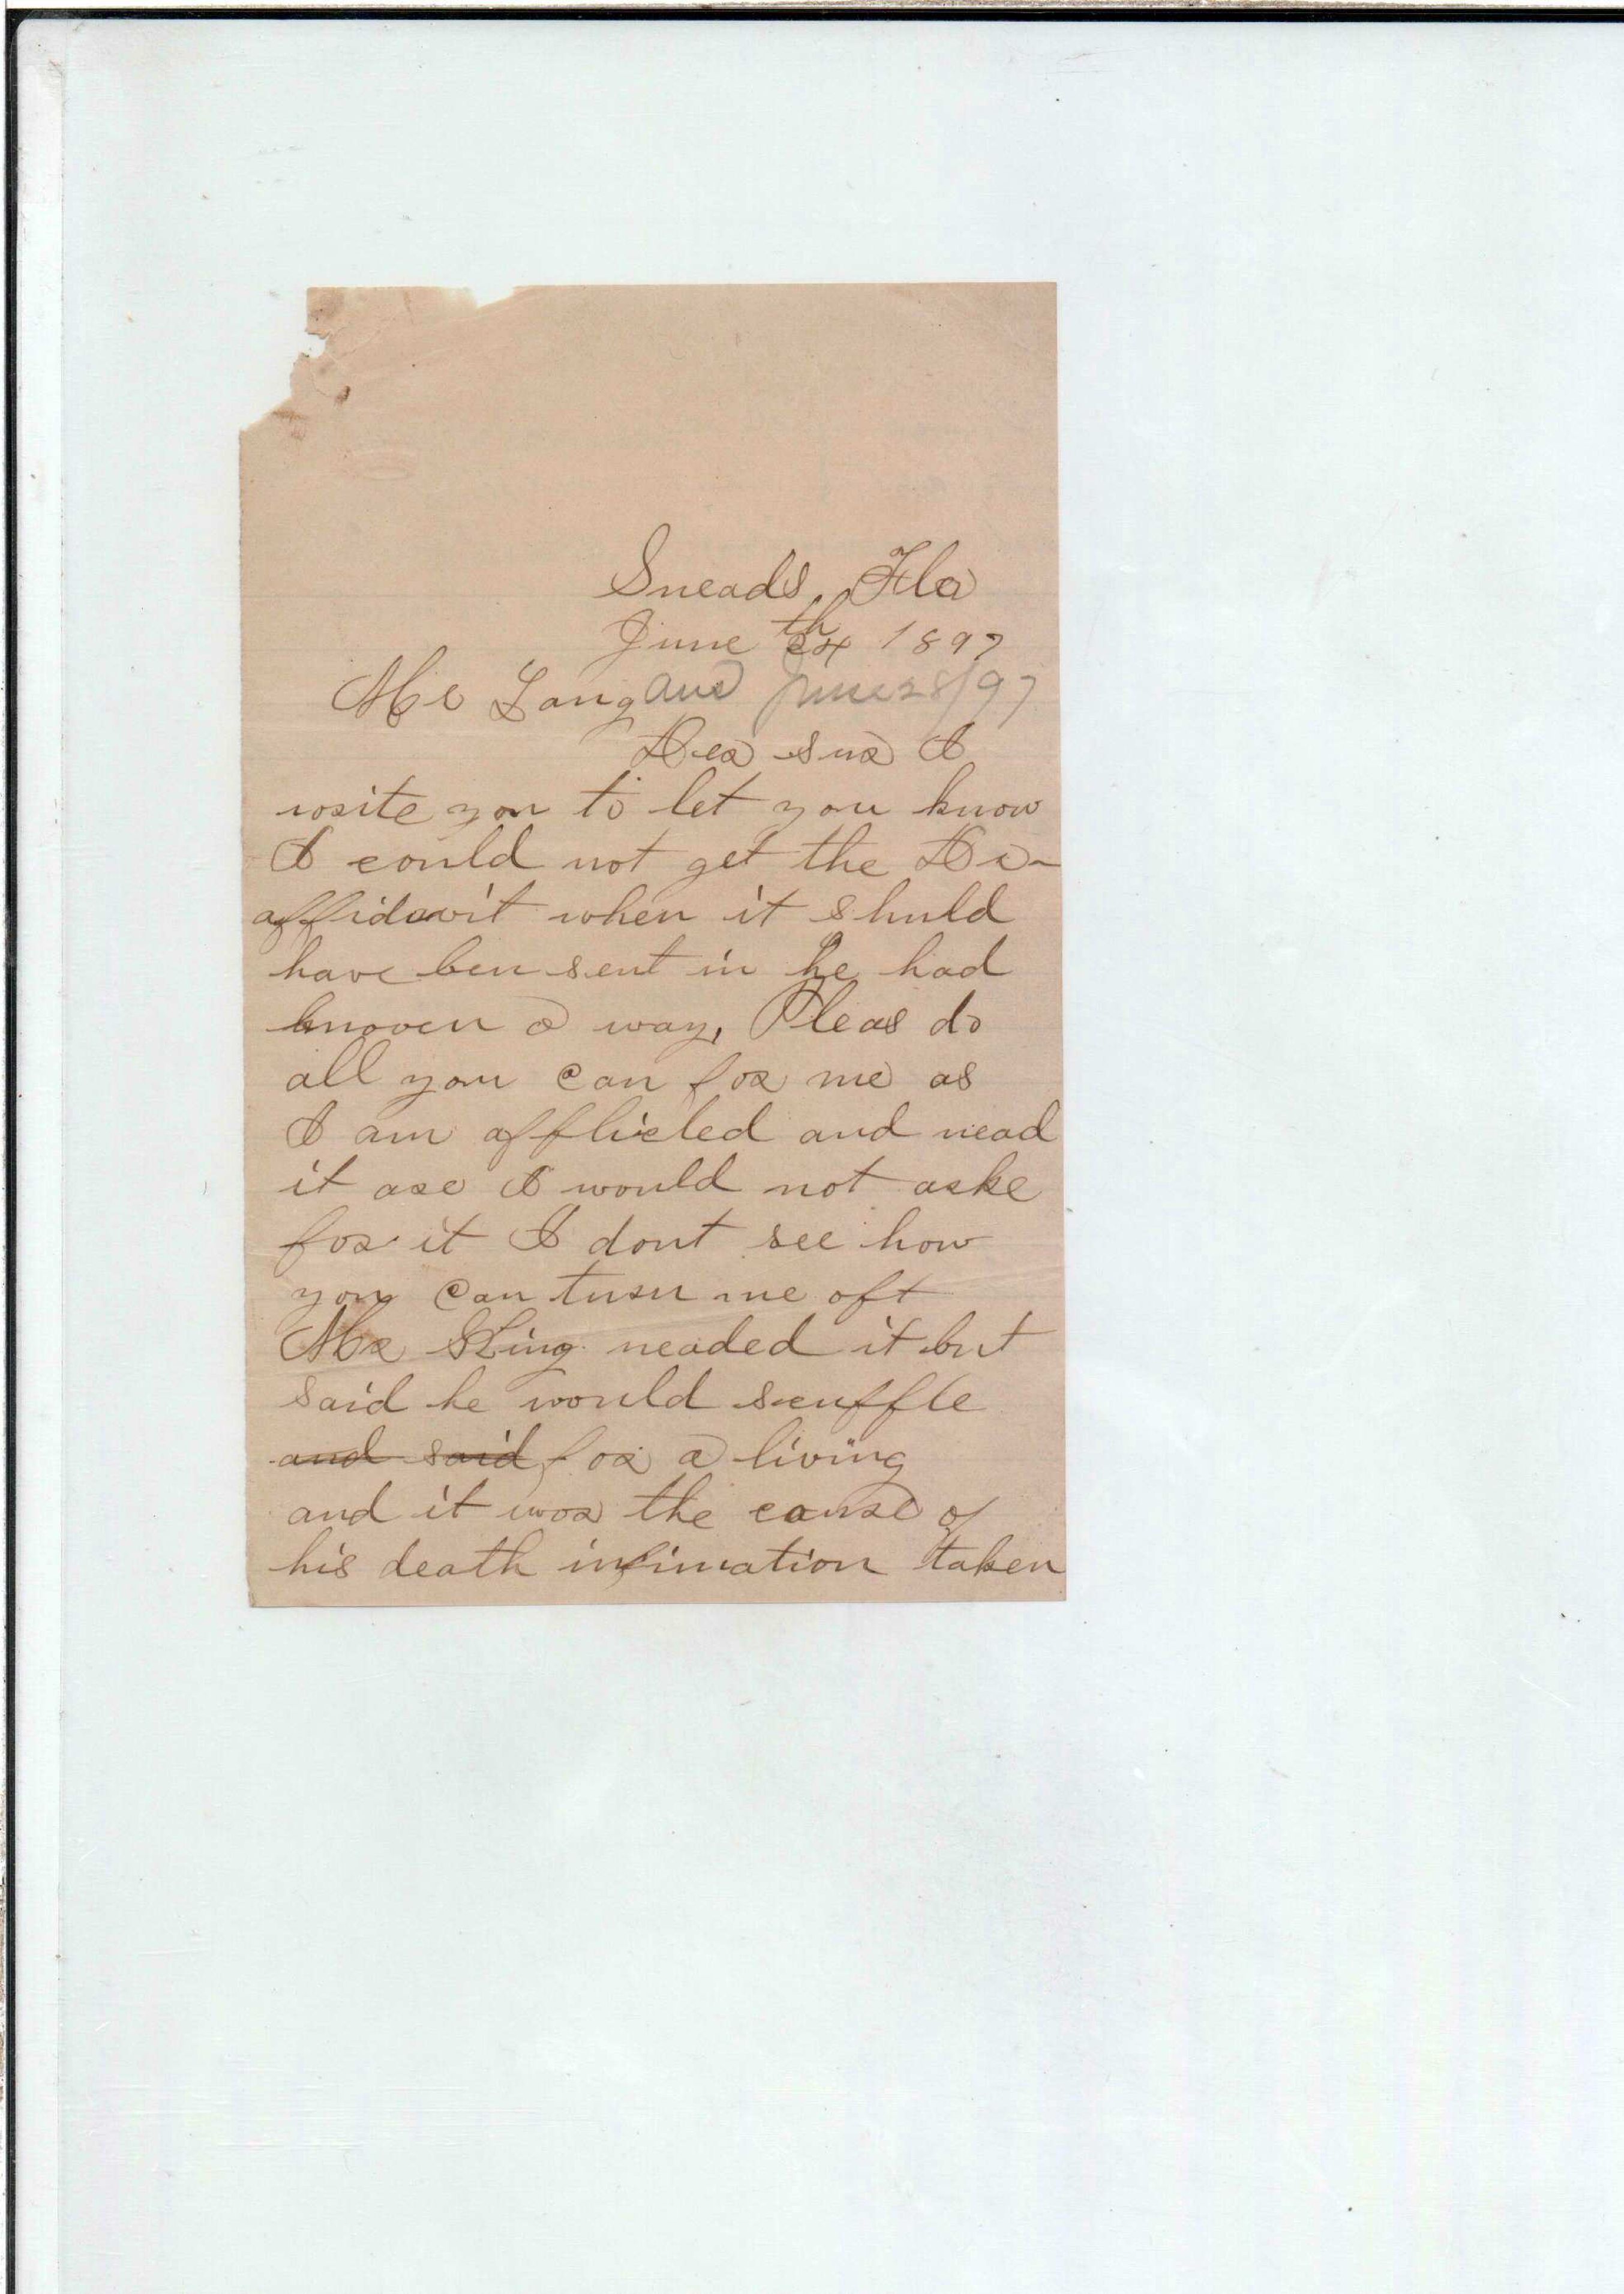 Sneads, Fla
June 24th 1897
Mr Lang Ans June 28/97
Der sur I
write you to let you know
I could not get the Dr
affidavit when it shuld
have ben sent in he had
moven a way, Pleas do
all you can for me as
I am afflicled and nead
it are I would not aske
for it I dont see how
you can turn me oft
Mr King neaded it but
said he would scuffle
and said for a living
and it was the cause of
his death infimation taken